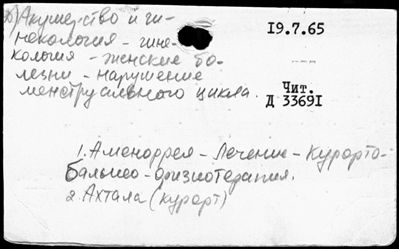 Акушерство и ги-
некология - гине-
кология - женские бо-
лезни - нарушение
менструального цикла.
19.7.65
Чит.
Д 33691
1. Аменоррея - Лечение - Курорто-
бальнео-физиотерапия.
2. Ахтала (курорт)